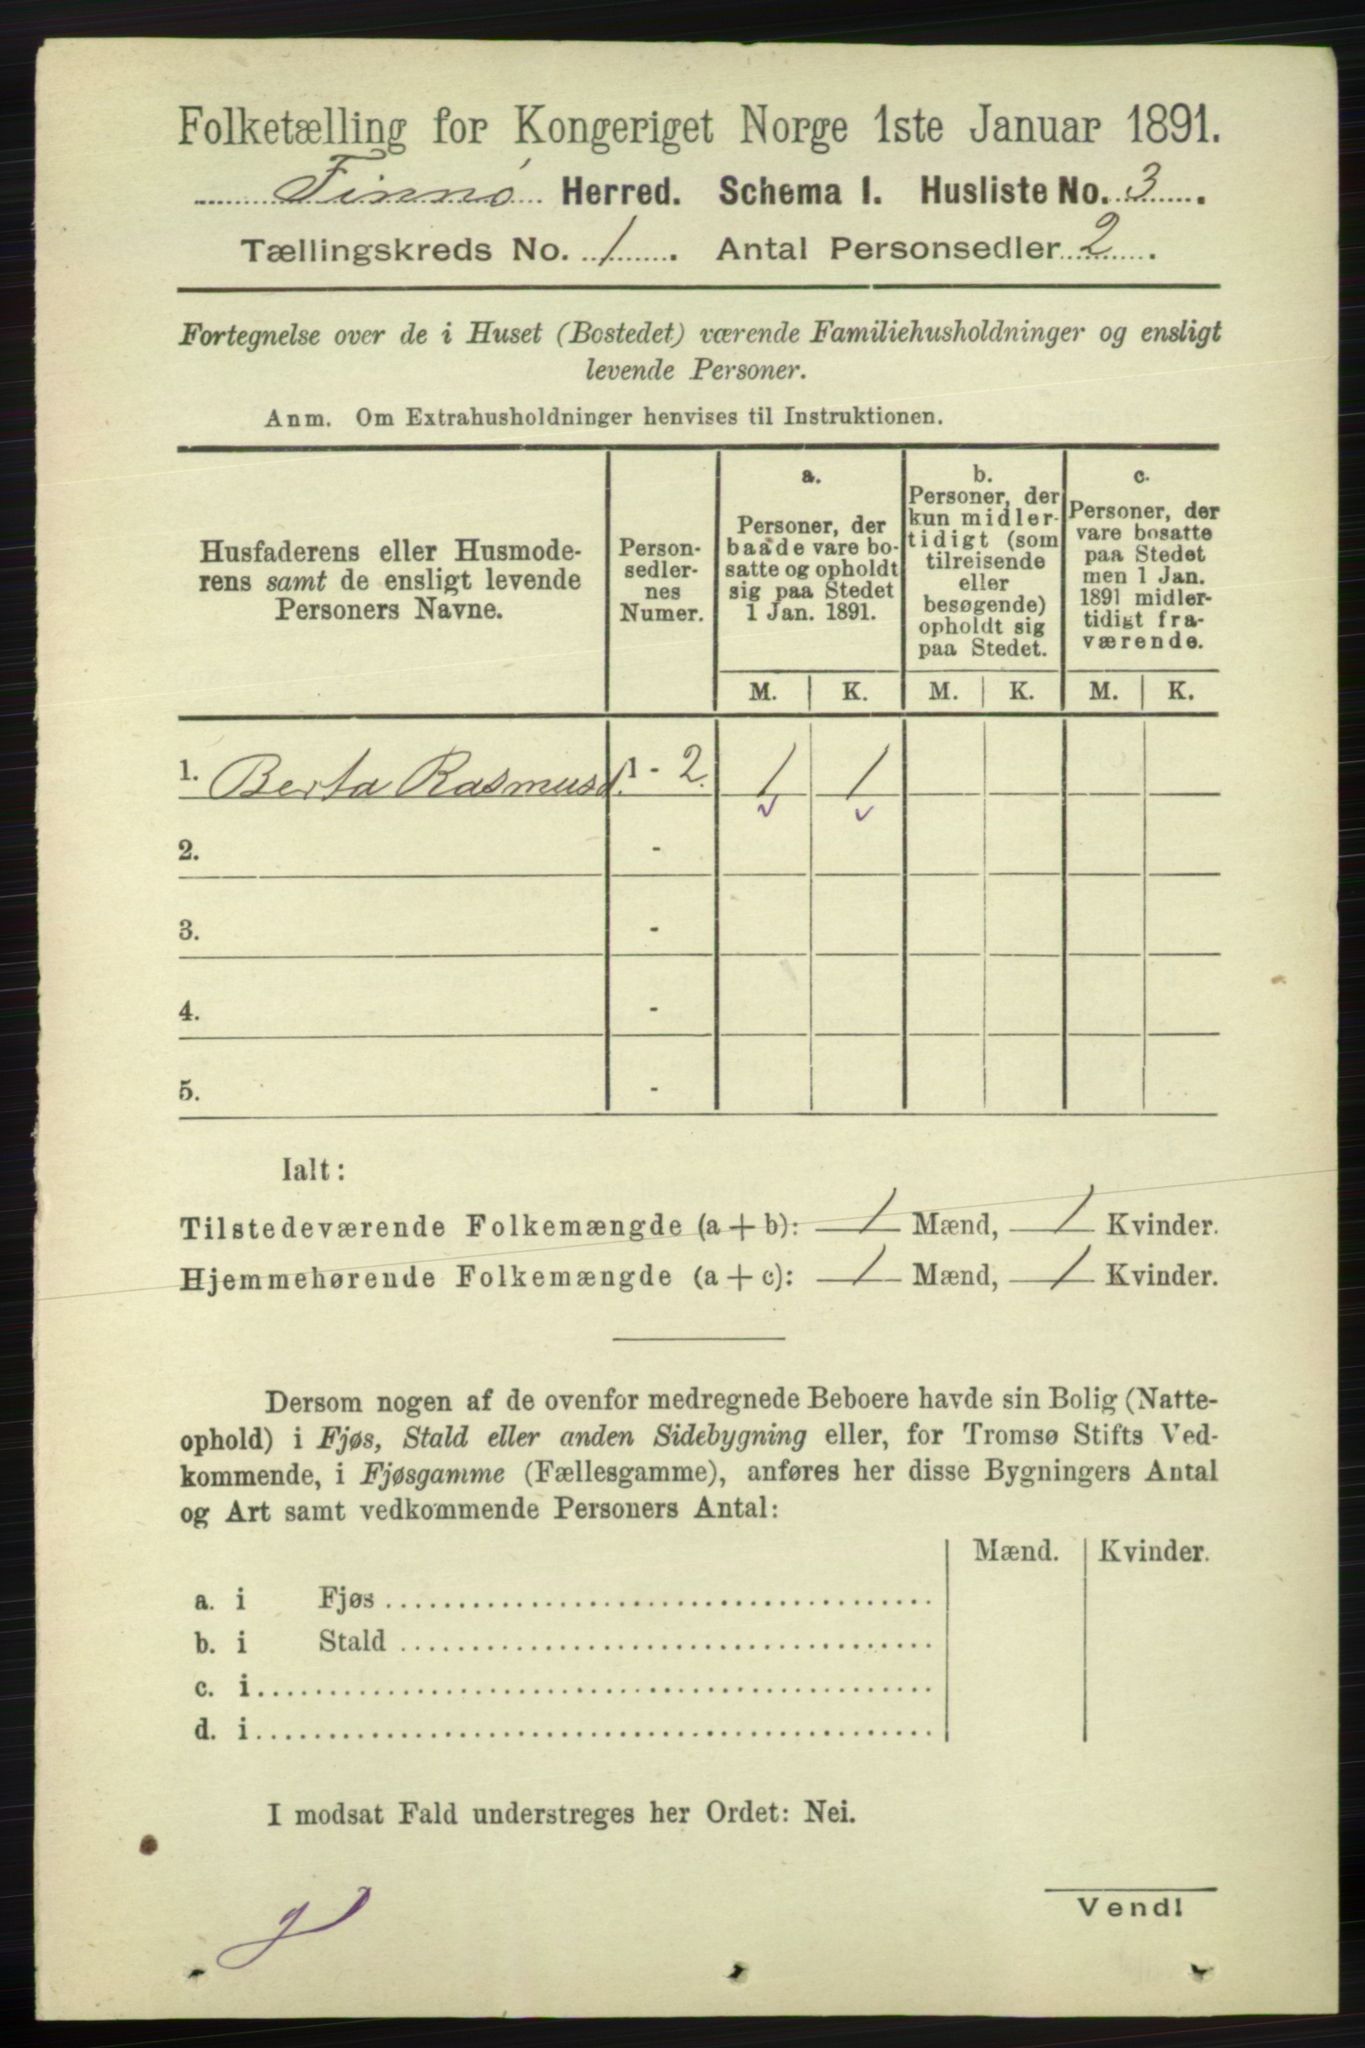 Folketælling for Kongeriget Norge 1ste Januar 1891.
Finnö Herred. Schema I. Husliste No. 3.
Tællingskreds No. 1. Antal Personsedler 2.
Fortegnelse over de i Huset (Bostedet) værende Familiehusholdninger og ensligt
levende Personer.
Anm. Om Extrahusholdninger henvises til Instruktionen.
Husfaderens eller Husmode-
rens samt de ensligt levende
Personers Navne.
Person-
sedler-
nes
Numer.
a.
Personer, der
baade vare bo-
satte og opholdt
sig paa Stedet
1 Jan. 1891.
b.
Personer, der
kun midler-
tidigt (som
tilreisende
eller
besøgende)
opholdt sig
paa Stedet.
c.
Personer, der
vare bosatte
paa Stedet
men 1 Jan.
1891 midler-
tidigt fra-
værende.
M. K. M. K. M. K.
1. Berta Rasmusd. 1 - 2. 1 1
2. -
3. -
4. -
5. -
Ialt:
Tilstedeværende Folkemængde (a + b): 1 Mænd, 1 Kvinder.
Hjemmehørende Folkemængde (a + c): 1 Mænd, 1 Kvinder.
Dersom nogen af de ovenfor medregnede Beboere havde sin Bolig (Natte-
ophold) i Fjøs, Stald eller anden Sidebygning eller, for Tromsø Stifts Ved-
kommende, i Fjøsgamme (Fællesgamme), anføres her disse Bygningers Antal
og Art samt vedkommende Personers Antal:
Mænd. Kvinder.
a. i Fjøs
b. i Stald
c. i
d. i
I modsat Fald understreges her Ordet: Nei.
Vend!